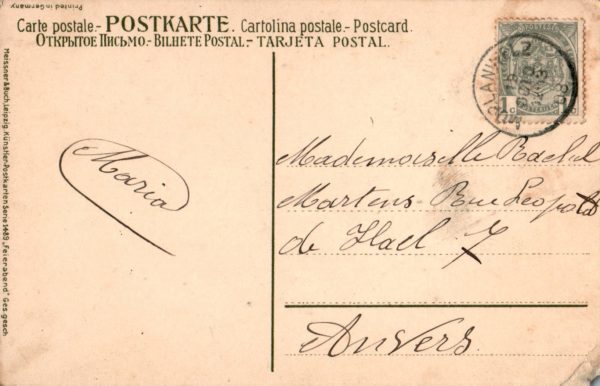 Printed in Germany
Carte postale.- POSTKARTE. Cartolina postale.- Postcard.
ОТКРЫТОЕ ПИСЬМО.- BILHETE POSTAL.- TARJETA POSTAL.
Meissner & Buch, Leipzig. Künstler-Postkarten Serie 1489 „Feierabend" Ges. gesch
Maria
Mademoiselle Rachel
Martens Rue Leopold
de Hael 7
Anvers.